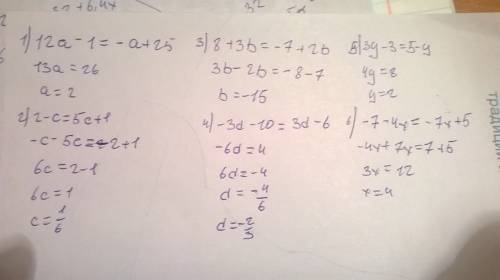 1) 12a - 1 = -a + 25
13a = 26
a = 2
2) 2 - c = 5c + 1
-c - 5c = -2 + 1
6c = 2 - 1
6c = 1
c = 1/6
3) 8 + 3b = -7 + 2b
3b - 2b = -8 - 7
b = -15
4) -3d - 10 = 3d - 6
-6d = 4
6d = -4
d = -4/6
d = -2/3
5) 3y - 3 = 5 - y
4y = 8
y = 2
6) -7 - 4x = -7x + 5
-4x + 7x = 7 + 5
3x = 12
x = 4